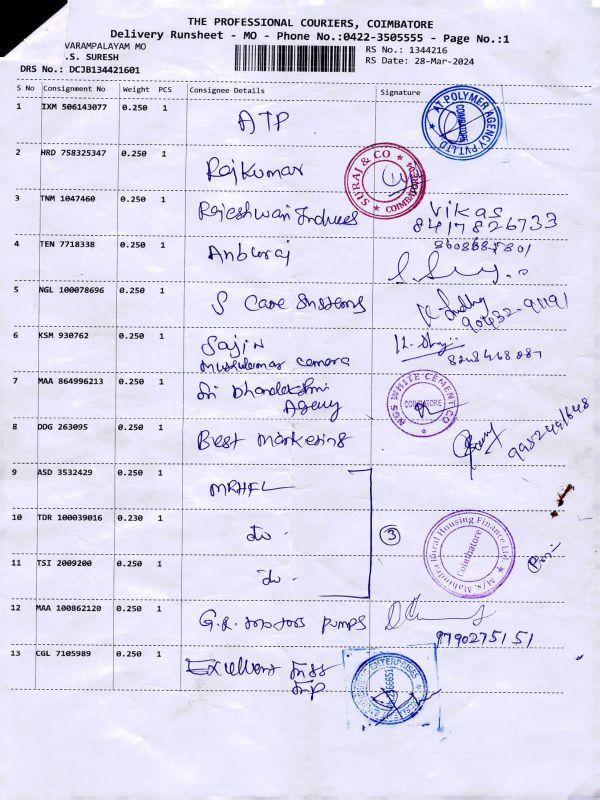 THE PROFESSIONAL COURIERS, COIMBATORE
Delivery Runsheet - MO - Phone No.:0422-3505555 - Page No.:1
VARAMPALAYAM MO
.S. SURESH
RS No.: 1344216
RS Date: 28-Mar-2024
DRS No.: DCJB134421601
S No Consignment No Weight PCS Consignee Details Signature
1 IXM 506143077 0.250 1 ATP
2 HRD 758325347 0.250 1 Rajkumar
SURAJ & CO COIMBATORE
3 TNM 1047460 0.250 1 Rajeshwari Vikas
8417826733
4 TEN 7718338 0.250 1 Anburaj
5 NGL 100078696 0.250 1 S Care Systems
6 KSM 930762 0.250 1 Sajin
camera 8248468087
7 MAA 864996213 0.250 1 Sri Dhanalakshmi
Agency
NGS WHITE CEMENT CO COIMBATORE
8 DDG 263095 0.250 1 Best Marketing 9952491648
9 ASD 3532429 0.250 1 MRHFL
10 TDR 100039016 0.230 1 do - 3
11 TSI 2009200 0.250 1 do -
M/s. Mahindra Rural Housing Finance Ltd. Coimbatore
12 MAA 100862120 0.250 1 G.R. Motors Pumps
9790275151
13 CGL 7105989 0.250 1 Excellent
ENTERPRISES